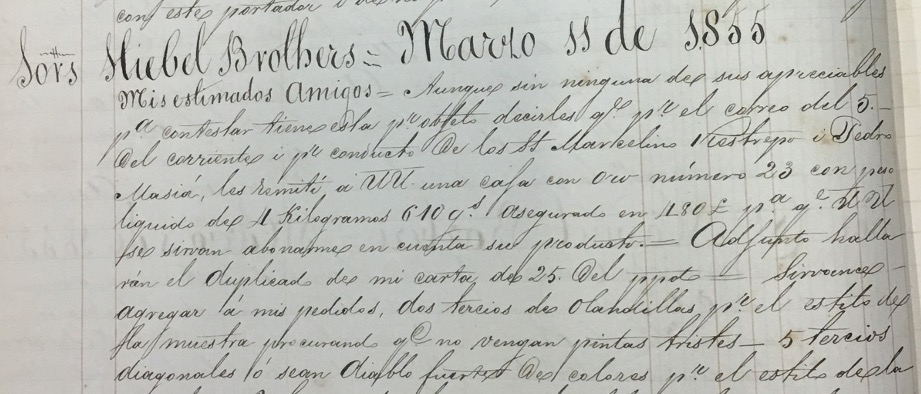 con este portador
Sors Hiebel Brothers = Marzo 11 de 1855
Mis estimados Amigos = Aunque sin ninguna de sus apreciables
pa contestar tiene esta pr objeto decirles qe pr el correo del 5. —
del corriente i pr conducto de los SS Marcelino Restrepo i Pedro
Masiá, les remití, a UU una caja con oro número 23 con peso
liquido de 4 Kilogramos 610 gs asegurado en 480 £ pa qe UU
se sirvan abonarme en cuenta su producto. = Adjunto halla
rán el duplicado de mi carta de 25. del ppdo = Sirvance —
agregar á mis pedidos, dos tercios de olandillas pr el estilo de
la muestra procurando qe no vengan pintas tristes — 5 tercios
diagonales ó sean diablo fuerte de colores pr el estilo de la